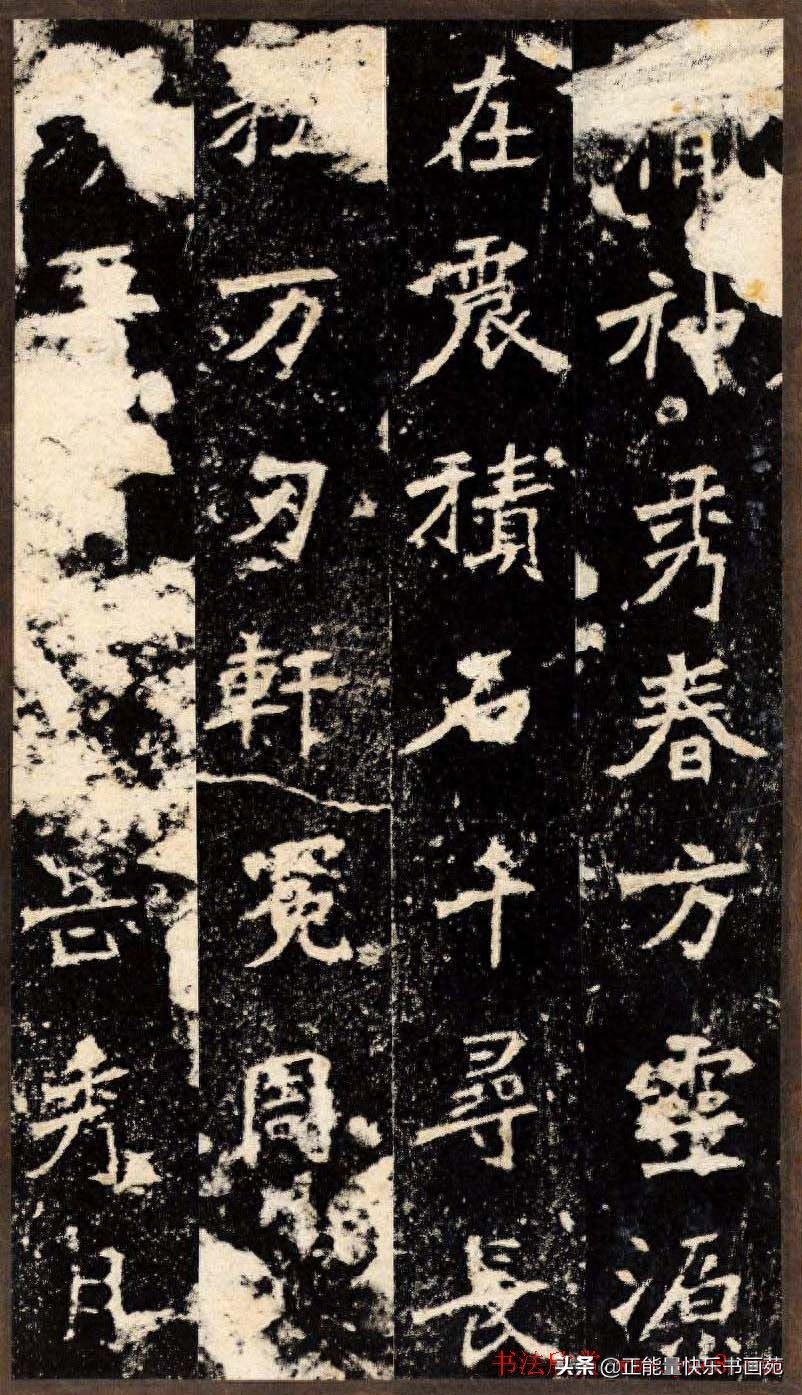 神秀春方靈源
在震積石千尋長
松万刃軒冕周
岳秀月
书法欣
头条 @正能量快乐书画苑